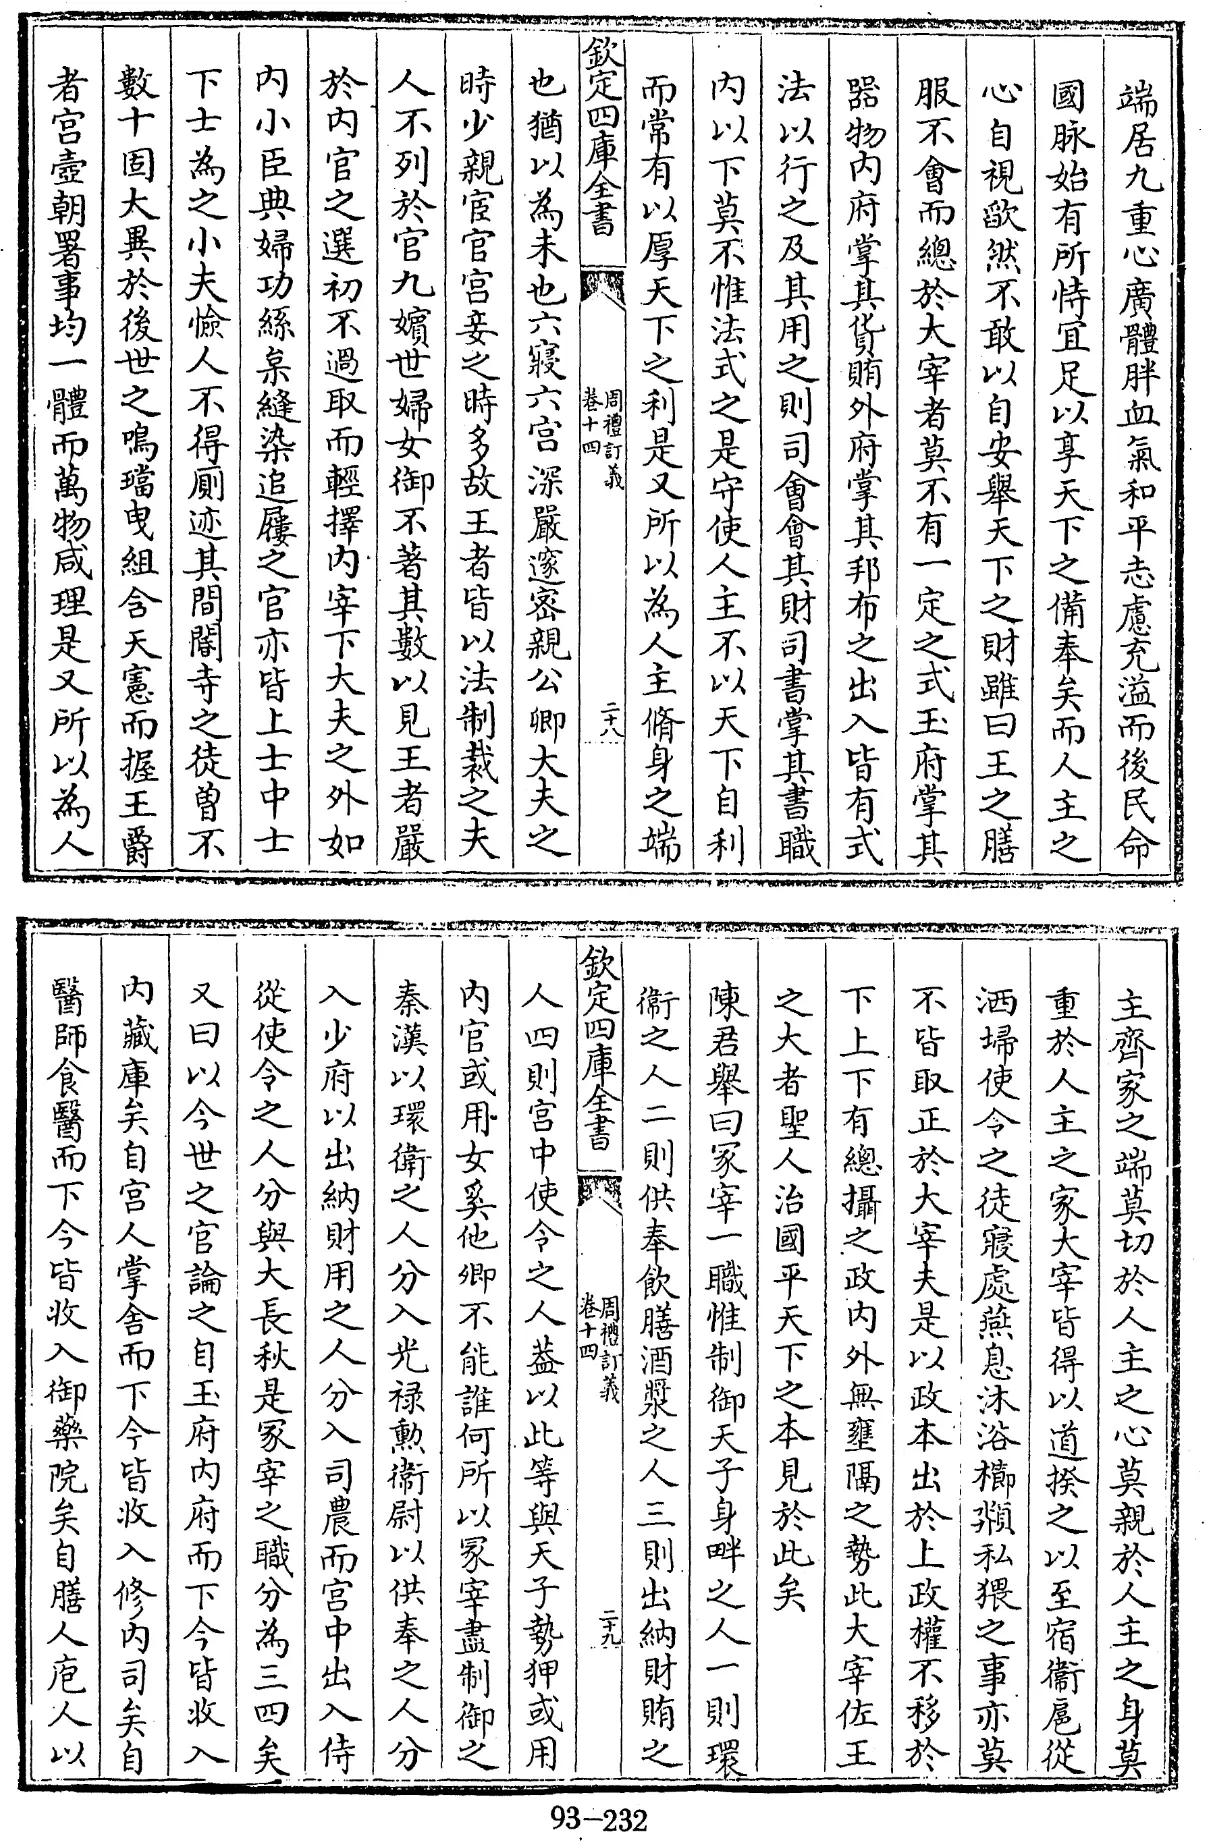 端居九重心廣體胖血氣和平志慮充溢而後民命
國脉始有所恃宜足以享天下之備奉矣而人主之
心自視歉然不敢以自安舉天下之財雖曰王之膳
服不會而總於大宰者莫不有一定之式玉府掌其
器物内府掌其貨賄外府掌其邦布之出入皆有式
法以行之及其用之則司會會其財司書掌其書職
内以下莫不惟法式之是守使人主不以天下自利
而常有以厚天下之利是又所以為人主脩身之端
欽定四庫全書
周禮訂義
卷十四
二十八
也猶以為未也六寢六宫深嚴邃密親公卿大夫之
時少親宦官宫妾之時多故王者皆以法制裁之夫
人不列於官九嬪世婦女御不著其數以見王者嚴
於内官之選初不過取而輕擇内宰下大夫之外如
内小臣典婦功絲枲縫染追屨之官亦皆上士中士
下士為之小夫憸人不得廁迹其間閽寺之徒曽不
數十固大異於後世之鳴璫曳組含天憲而握王爵
者宫壼朝署事均一體而萬物咸理是又所以為人
主齊家之端莫切於人主之心莫親於人主之身莫
重於人主之家大宰皆得以道揆之以至宿衞扈從
洒埽使令之徒寢處燕息沐浴櫛頮私猥之事亦莫
不皆取正於大宰夫是以政本出於上政權不移於
下上下有總攝之政内外無壅隔之勢此大宰佐王
之大者聖人治國平天下之本見於此矣
陳君舉曰冡宰一職惟制御天子身畔之人一則環
衞之人二則供奉飲膳酒漿之人三則出納財賄之
欽定四庫全書
周禮訂義
卷十四
二十九
人四則宫中使令之人葢以此等與天子勢狎或用
内官或用女奚他卿不能誰何所以冡宰盡制御之
秦漢以環衛之人分入光禄勲衞尉以供奉之人分
入少府以出納財用之人分入司農而宫中出入侍
從使令之人分與大長秋是冡宰之職分為三四矣
又曰以今世之官論之自玉府内府而下今皆收入
内藏庫矣自宫人掌舍而下今皆收入修内司矣自
醫師食醫而下今皆收入御藥院矣自膳人庖人以
93-232